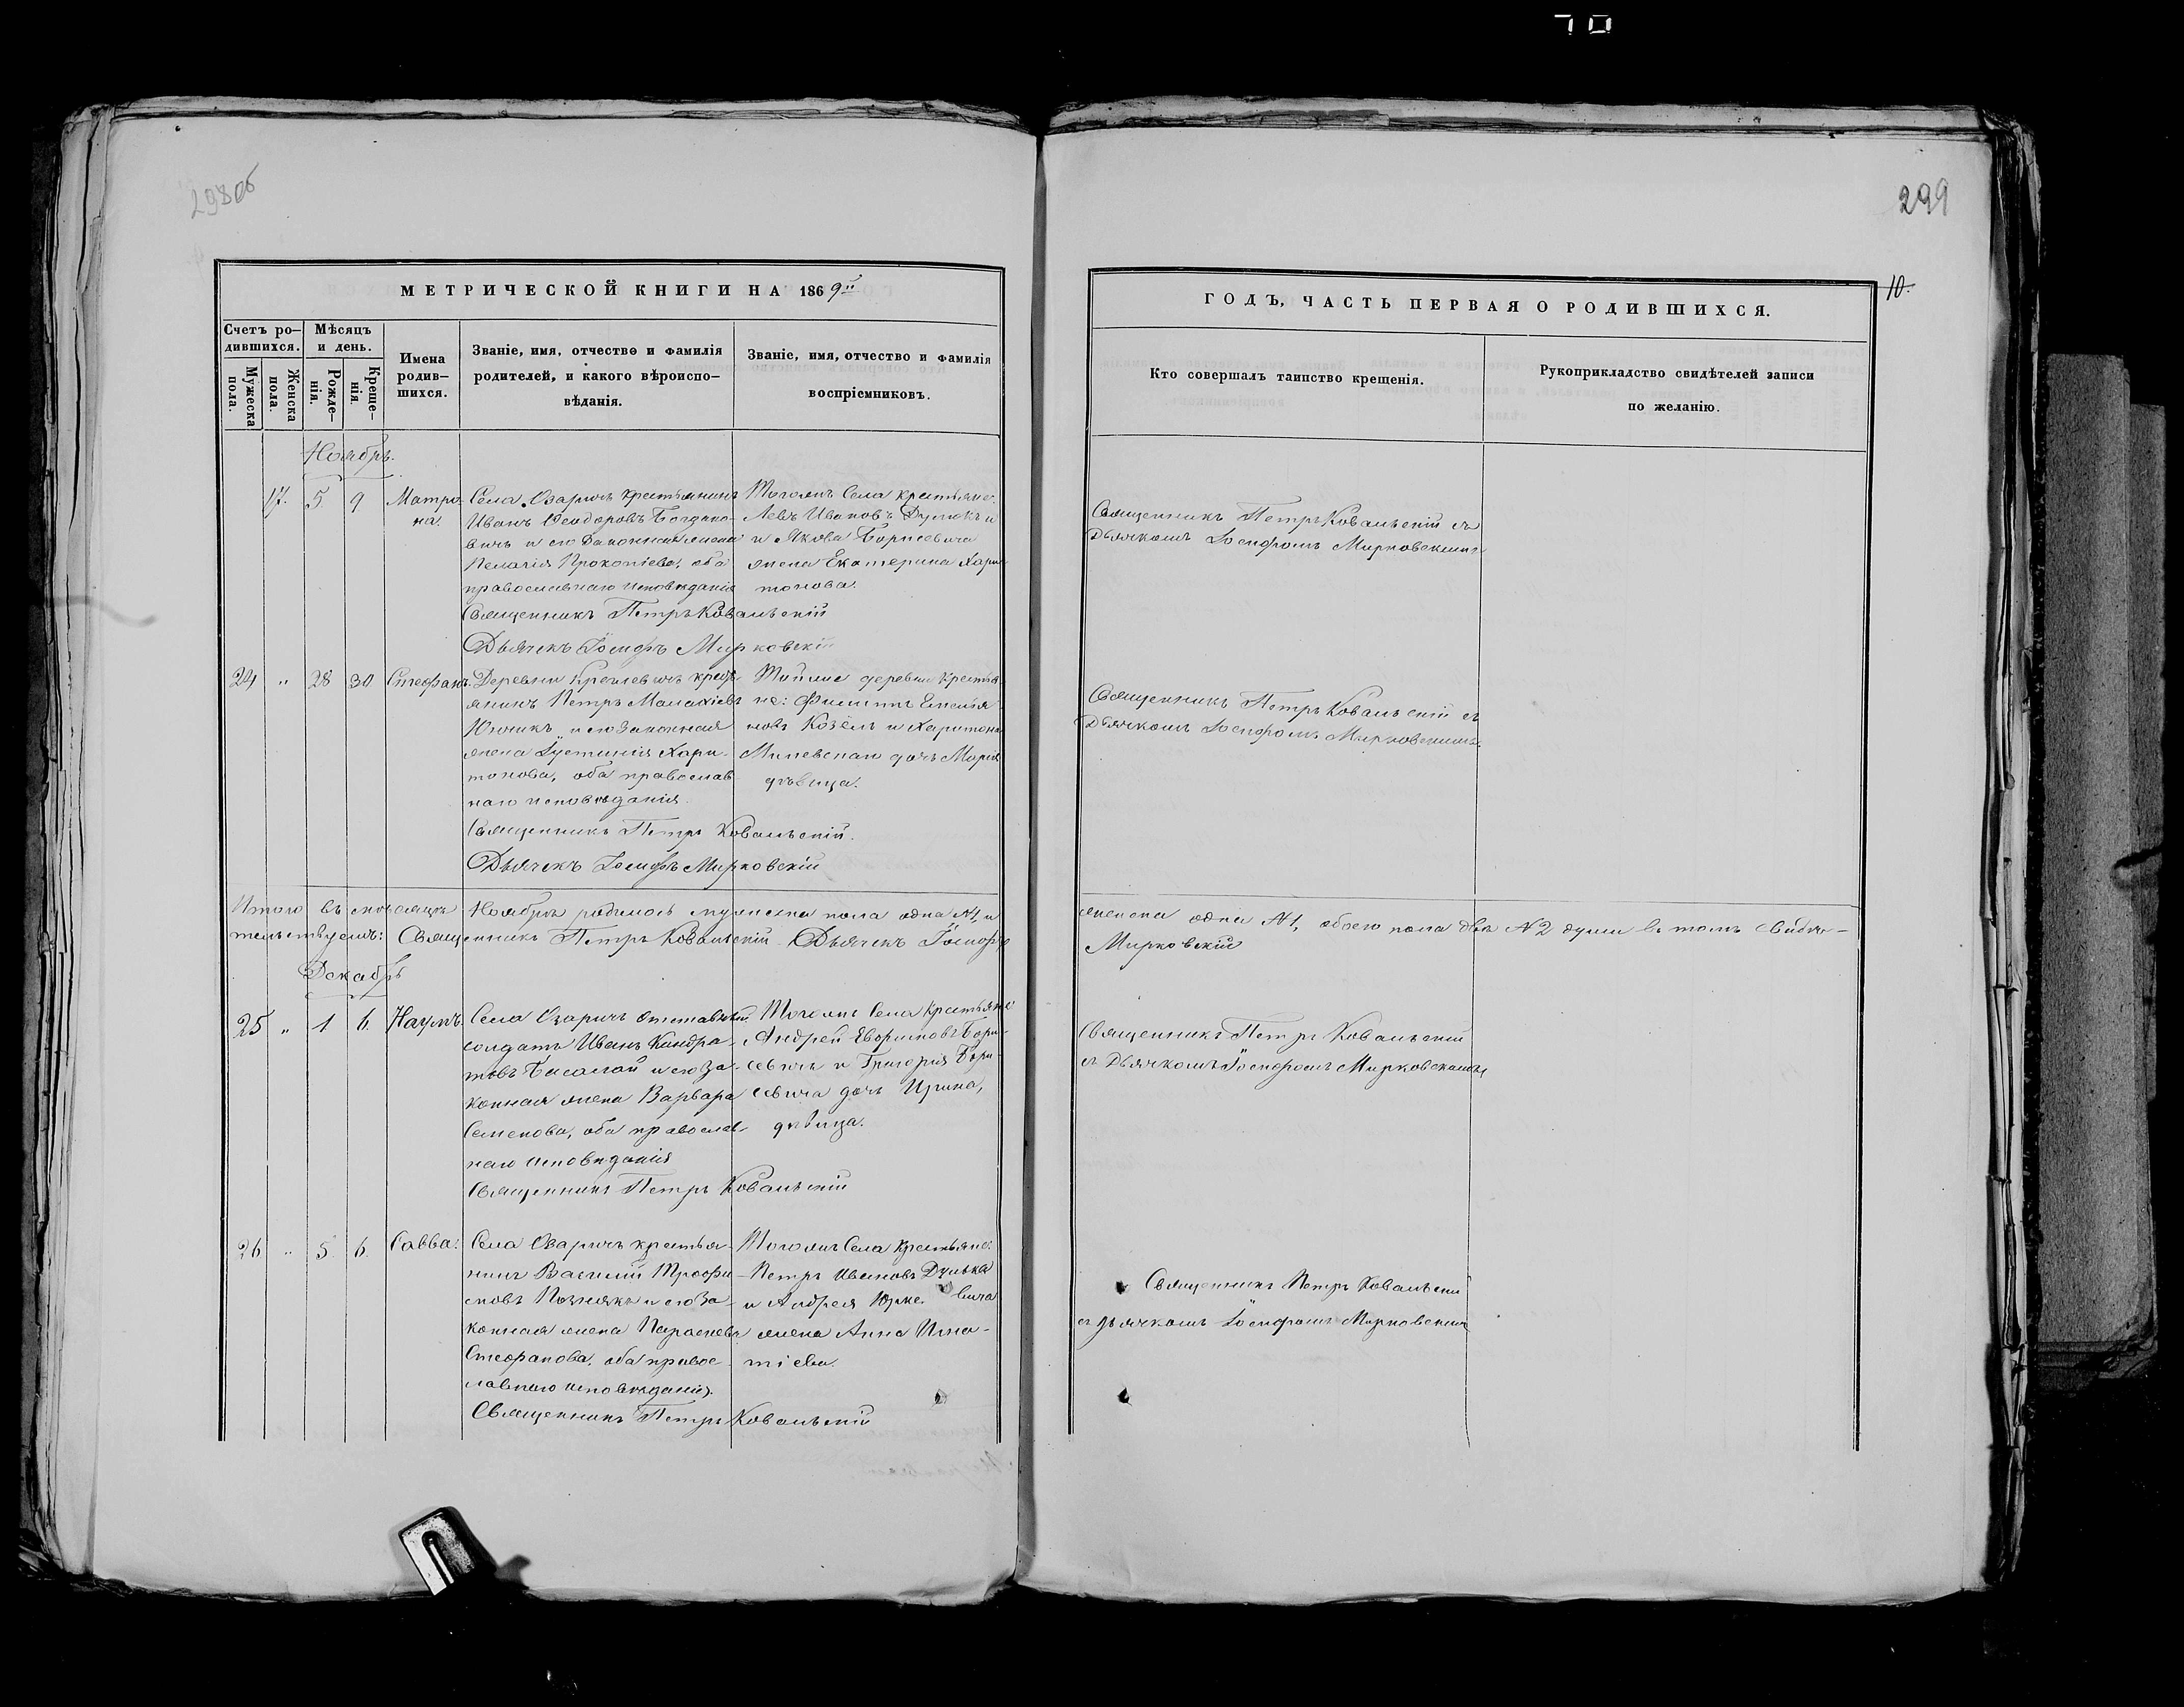 70
298об
299
10.
МЕТРИЧЕСКОЙ КНИГИ НА 1869й
ГОДЪ, ЧАСТЬ ПЕРВАЯ О РОДИВШИХСЯ.
Счетъ ро-
дившихся.
Мѣсяцъ
и день.
Мужеска
пола.
Женска
пола.
Рожде-
нія.
Креще-
нія.
Имена
родив-
шихся.
Званіе, имя, отчество и фамилія
родителей, и какого вѣроиспо-
вѣданія.
Званіе, имя, отчество и фамилія
воспріемниковъ.
Кто совершалъ таинство крещенія.
Рукоприкладство свидѣтелей записи
по желанію.
Ноябрь.
17. 5. 9 Матро-
на.
Села Озаричъ крестьянинъ
Иванъ Ѳеодоровъ Богдано-
вичъ и его законная жена
Пелагія Прокопіева, оба
православнаго исповѣданія
Священникъ Петръ Ковальскій
Дьячекъ Іосифъ Мирковскій
Тогожъ Села крестьяне:
Левъ Ивановъ и
и Якова Борисевича
жена Екатерина Хари-
тонова.
Священникъ Петръ Ковальскій съ
Дьячкомъ Іосифомъ Мирковскимъ
24 " 28 30 Стефанъ.
Деревни крестъ-
янинъ Петръ Малахіевъ
и его законная
жена Іустинія Хари-
тонова, оба православ-
наго исповѣданія.
Священникъ Петръ Ковальскій.
Дьячекъ Іосифъ Мирковскій
Тойже деревни крестья-
не: Филиппъ
новъ Козелъ и Харитона
дочь Марія
дѣвица.
Священникъ Петръ Ковальскій съ
Дьячкомъ Іосифомъ Мирковскимъ.
Итого въ мѣсяцѣ Ноябрѣ родилось мужеска пола одна №1, и
женска одна №1, обоего пола двѣ №2 души въ томъ свидѣ-
тельствуемъ: Священникъ Петръ Ковальскій Дьячекъ Іосифъ
Мирковскій
Декабрь
25 " 1 6. Наумъ.
Села Озаричъ отставный
солдатъ Иванъ Кондра-
товъ и его за-
конная жена Варвара
Семенова, оба православ-
наго исповѣданія
Священникъ Петръ Ковальскій
Тогожъ Села крестьяне:
Андрей Евфимовъ Бори-
севичъ и Григорія Бори-
севича дочь Ирина,
дѣвица.
Священникъ Петръ Ковальскій
съ Дьячкомъ Іосифомъ Мирковскимъ
26 " 5. 6. Савва.
Села Озаричъ крестья-
нинъ Василій Трофи-
мовъ Познякъ и его за-
конная жена Параскева
Стефанова, оба правос-
лавнаго исповѣданія.
Священникъ Петръ Ковальскій
Тогожъ Села крестьяне:
Петръ Ивановъ
и Андрея вича
жена Анна Игна-
тіева.
Священникъ Петръ Ковальскій
съ дьячкомъ Іосифомъ Мирковскимъ